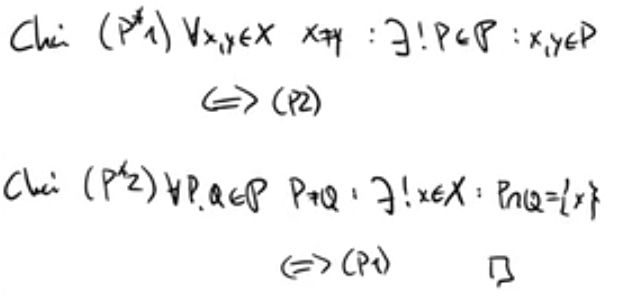 Chci (P*1) ∀x,y∈X x≠y : ∃! P∈𝒫 : x,y∈P
⟺ (P2)
Chci (P*2) ∀P,Q∈𝒫 P≠Q : ∃! x∈X : P∩Q={x}
⟺ (P1) □